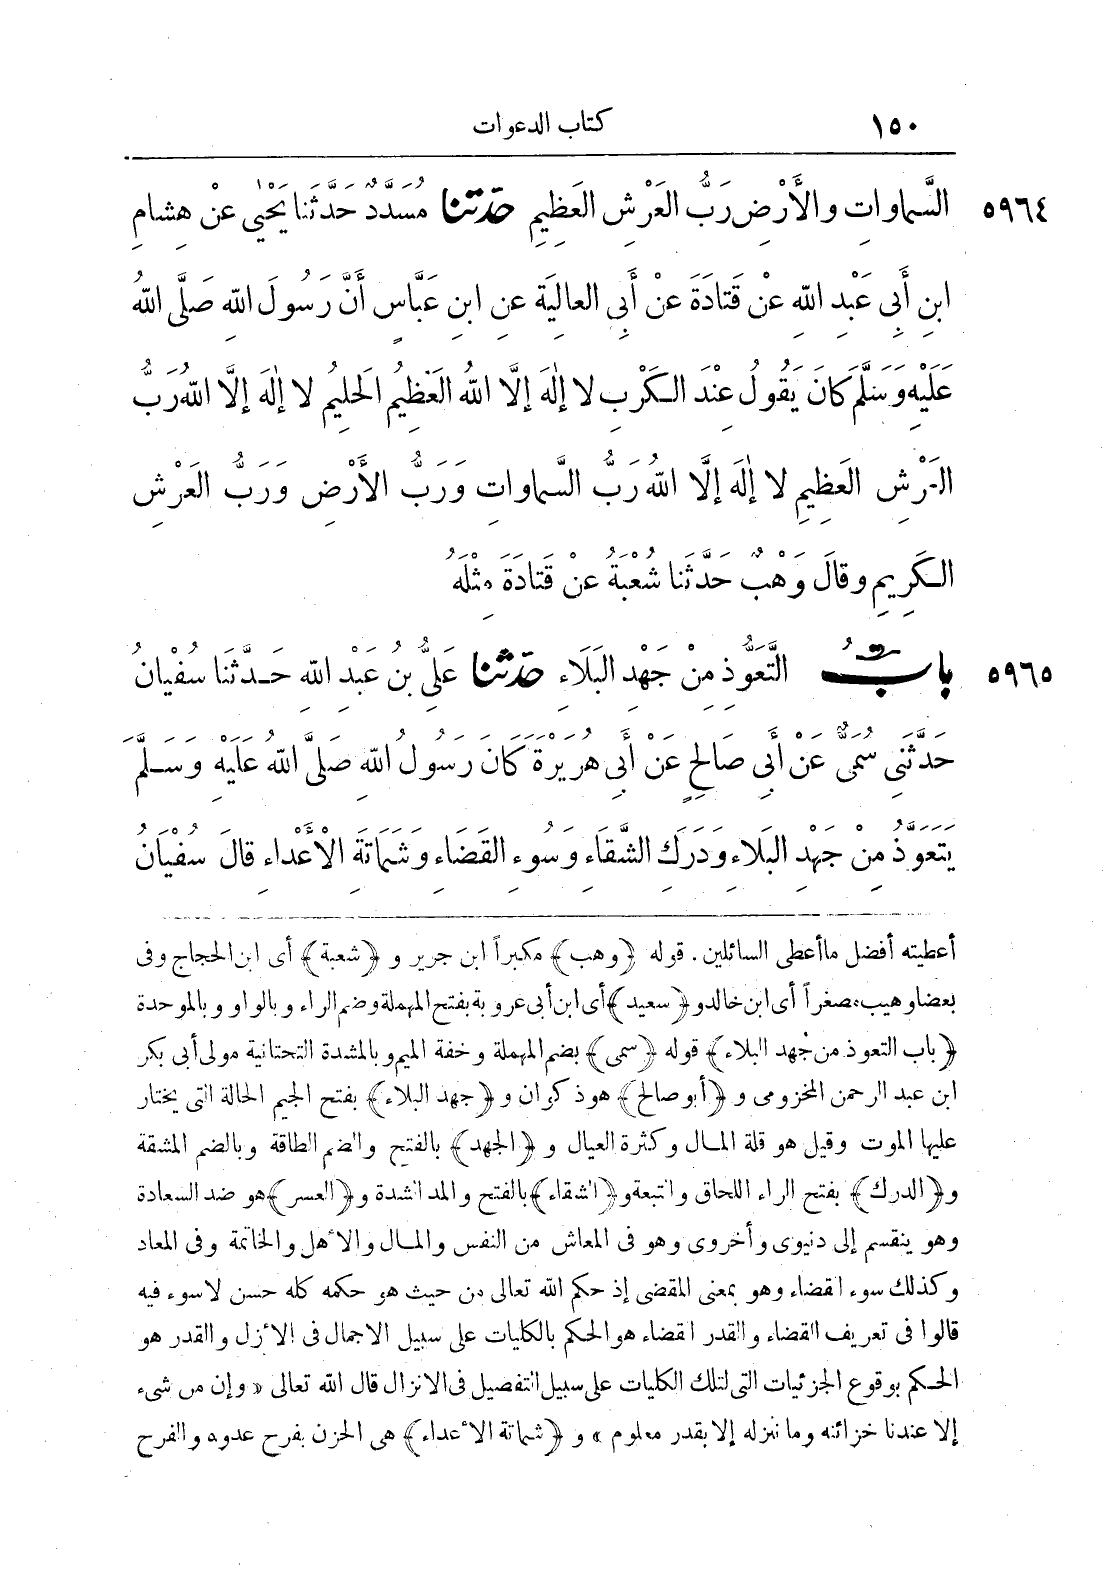 ١٥٠ كتاب الدعوات
٥٩٦٤ السَّماوات والأَرْضِ رَبُّ العَرْشِ العَظِيمِ حَدَّثَنا مُسَدَّدٌ حَدَّثَنا يَحْيَى عَنْ هِشامِ
ابنِ أَبِى عَبْدِ اللهِ عَنْ قَتادَةَ عَنْ أَبِى العالِيَة عنِ ابنِ عَبَّاسٍ أَنَّ رَسُولَ اللهِ صَلَّى اللهُ
عَلَيْهِ وَسَلَّمَ كانَ يَقُولُ عِنْدَ الكَرْبِ لا إِلٰهَ إلَّا اللهُ العَظِيمُ الحَلِيمُ لا إلٰهَ إلَّا اللهُ رَبُّ
العَرْشِ العَظِيمِ لا إلٰهَ إلَّا اللهُ رَبُّ السَّماوات وَرَبُّ الأَرْضِ وَرَبُّ العَرْشِ
الكَرِيمِ وقالَ وَهْبٌ حَدَّثَنا شُعْبَةُ عَنْ قَتادَةَ مِثْلَهُ
٥٩٦٥ بابُ التَّعَوُّذِ مِنْ جَهْدِ البَلَاءِ حَدَّثَنا عَلِىُّ بنُ عَبْدِ اللهِ حَدَّثَنا سُفْيانُ
حَدَّثَنِى سُمَىٌّ عَنْ أَبِى صَالِحٍ عَنْ أَبِى هُرَيْرَةَ كَانَ رَسُولُ اللهِ صَلَّى اللهُ عَلَيْهِ وَسَلَّمَ
يَتَعَوَّذُ مِنْ جَهْدِ البَلاءِ وَدَرَكِ الشَّقَاءِ وَسُوءِ القَضَاءِ وَشَمَاتَةِ الأَعْداءِ قالَ سُفْيَانُ
أعطيته أفضل ما أعطى السائلين . قوله ﴿وهب﴾ مكبراً ابن جرير و ﴿شعبة﴾ أى ابن الحجاج وفى
بعضها وهيب مصغراً أى ابن خالد و ﴿سعيد﴾ أى ابن أبى عروبة بفتح المهملة وضم الراء وبالواو وبالموحدة
﴿باب التعوذ من جُهد البلاء﴾ قوله ﴿سمى﴾ بضم المهملة وخفة الميم وبالمشدة التحتانية مولى أبى بكر
ابن عبد الرحمن المخزومى و ﴿أبو صالح﴾ هو ذكوان و ﴿جهد البلاء﴾ بفتح الجيم الحالة التى يختار
عليها الموت وقيل هو قلة المال وكثرة العيال و ﴿الجهد﴾ بالفتح والضم الطاقة وبالضم المشقة
و﴿الدرك﴾ بفتح الراء اللحاق والتبعة و﴿الشقاء﴾ بالفتح والمد الشدة و﴿العسر﴾ هو ضد السعادة
وهو ينقسم إلى دنيوى وأخروى وهو فى المعاش من النفس والمال والأهل والخاتمة وفى المعاد
وكذلك سوء القضاء وهو بمعنى المقضى إذ حكم الله تعالى من حيث هو حكمه كله حسن لا سوء فيه
قالوا فى تعريف القضاء والقدر القضاء هو الحكم بالكليات على سبيل الاجمال فى الأزل والقدر هو
الحكم بوقوع الجزئيات التى لتلك الكليات على سبيل التفصيل فى الانزال قال الله تعالى «وإن من شىء
إلا عندنا خزائنه وما ننزله إلا بقدر معلوم» و ﴿شماتة الأعداء﴾ هى الحزن بفرح عدوه والفرح